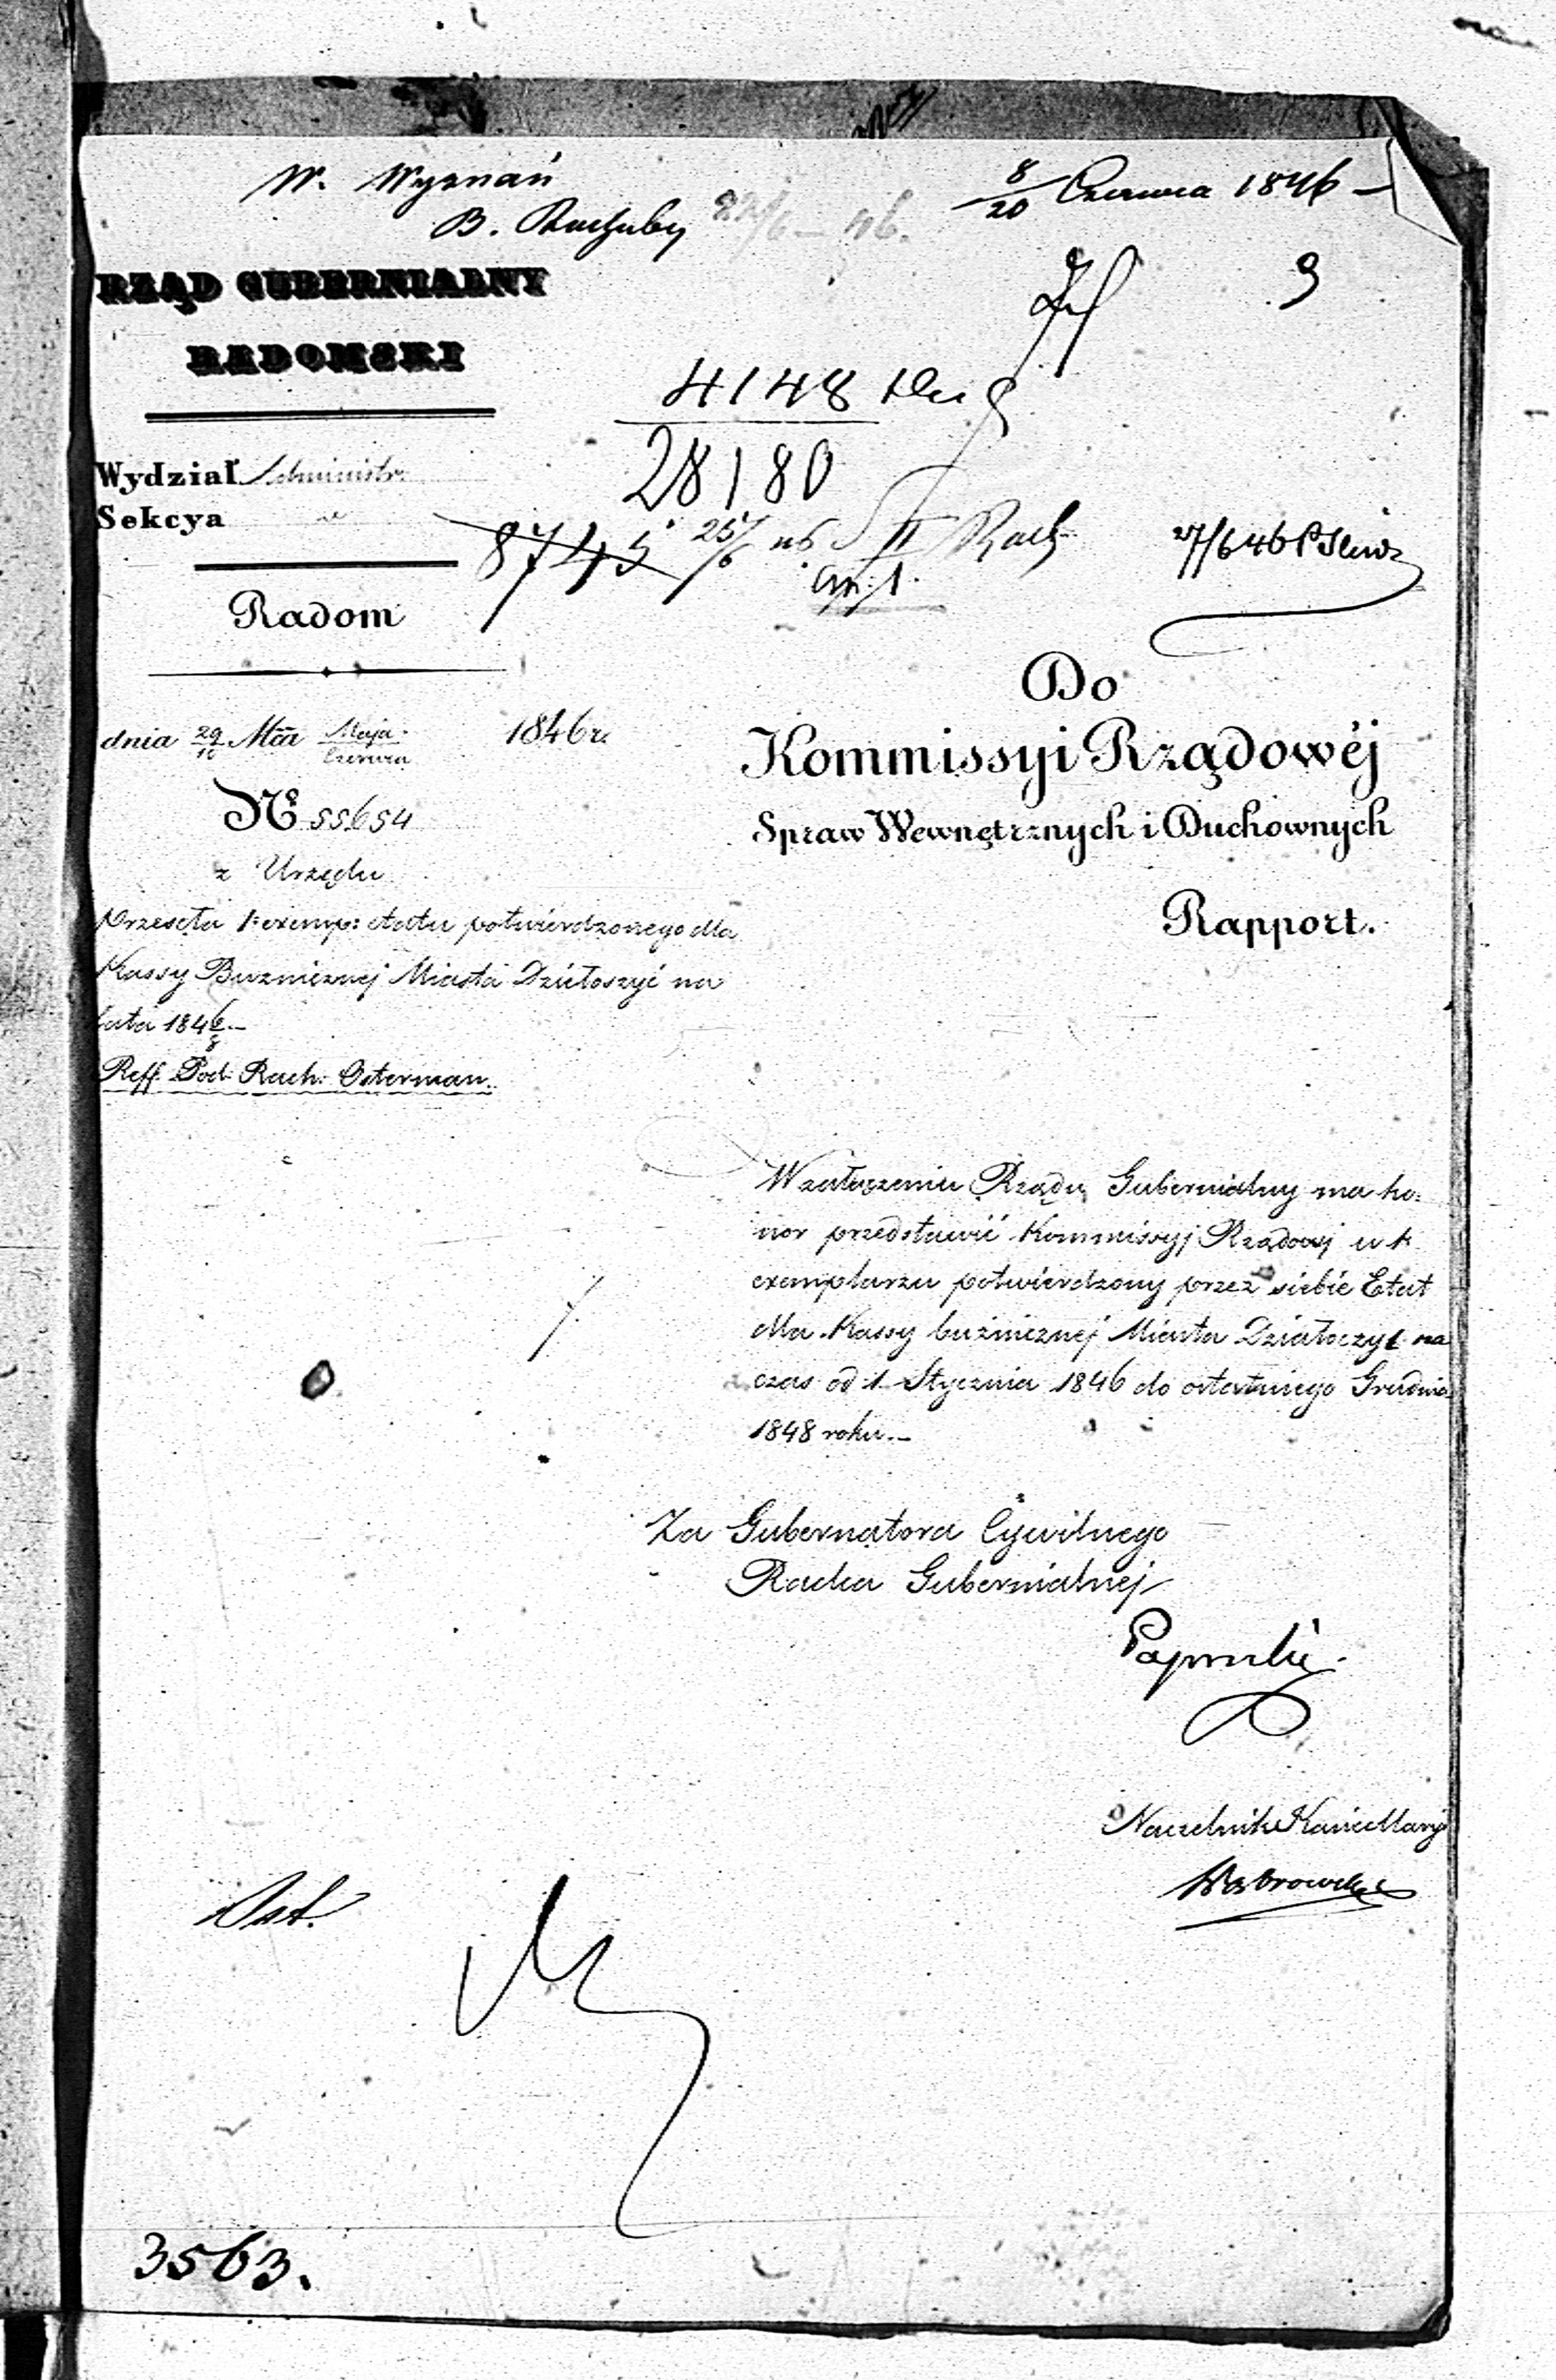 W. Wyznań
B. Rachuby 22/6 – 46.
8/20 Czerwca 1846 –
9
RZĄD GUBERNIALNY
RADOMSKI
4148
28180
Wydział Administr.
Sekcya
8745 25/6 46 II Rach
27/6 46
Radom
Do
dnia 29/10 Mca Maja/Czerwca 1846 r.
Kommissyi Rządowéj
Nº 55654
Spraw Wewnętrznych i Duchownych
z Urzędu
Rapport.
Przesyła 1 exemp: etatu potwierdzonego dla
Kassy Bużnicznej Miasta Działoszyc na
lata 1846/8.–
Reff. Pod. Rach. Osterman.
W załączeniu Rządu Gubernialny ma ho:
nor przedstawić Kommissyj Rządowej w 1
exemplarzu potwierdzony przez siebie Etat
dla Kassy bużnicznej Miasta Działoszyc na
czas od 1 Stycznia 1846 do ostatniego Grudnia
1848 roku.–
Za Gubernatora Cywilnego
Radca Gubernialnej
Naczelnik Kancellaryi
Ost.
3563.